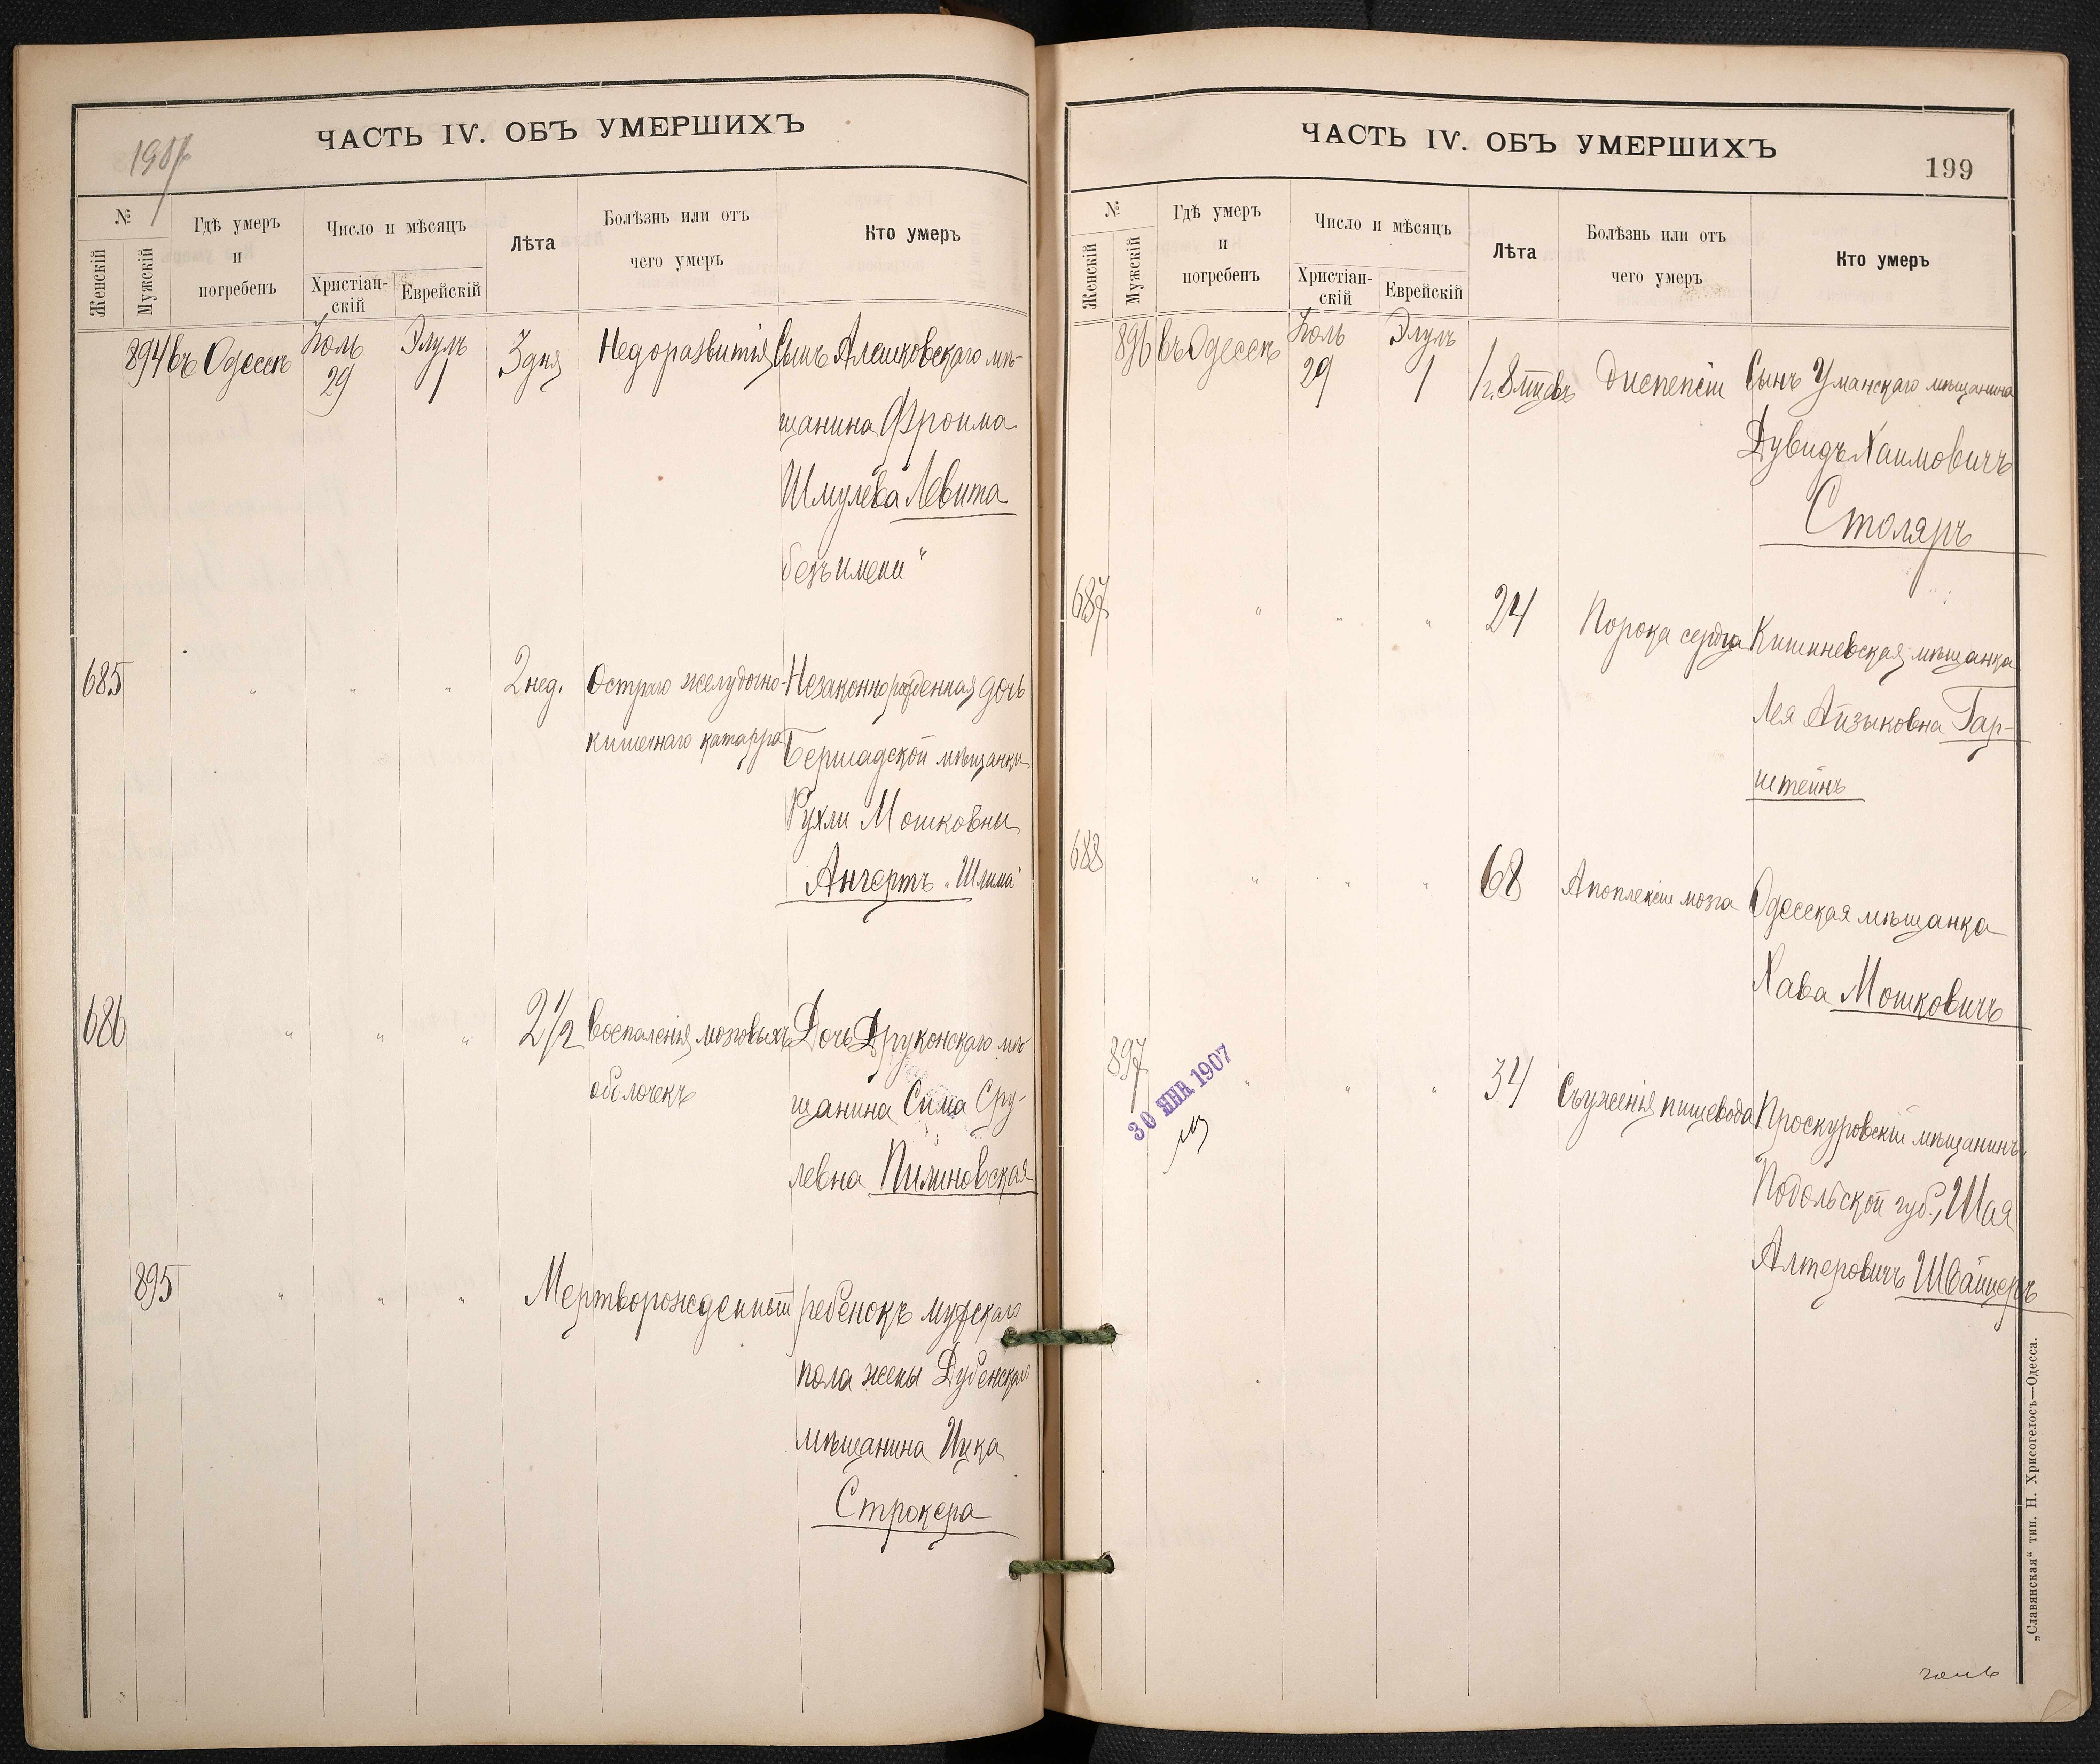 1907
ЧАСТЬ IV. ОБЪ УМЕРШИХЪ
№
Женскій
Мужскій
Гдѣ умеръ
и
погребенъ
Число и мѣсяцъ
Христіан-
скій
Еврейскій
Лѣта
Болѣзнь или отъ
чего умеръ
Кто умеръ
894 въ Одессѣ Іюль 29 Элулъ 1 3 дня Недоразвитія Сынъ Алешковскаго мѣ-
щанина Фроима
Шмулева Левита
безъ имени"
685 " " " 2 нед. Остраго желудочно- Незаконнорожденная дочь
кишечнаго катарра Бершадской мѣщанки
Рухли Мошковны
Ангертъ „Шлима"
686 " " " 2 1/2 Воспаленія мозговыхъ Дочь Друконскаго мѣ-
оболочекъ щанина Сима Сру-
левна Пилиновская
895 " " " Мертворожденный ребенокъ мужскаго
пола жены Дубенскаго
мѣщанина Ицка
Строкера
ЧАСТЬ IV. ОБЪ УМЕРШИХЪ
199
№
Женскій
Мужскій
Гдѣ умеръ
и
погребенъ
Число и мѣсяцъ
Христіан-
скій
Еврейскій
Лѣта
Болѣзнь или отъ
чего умеръ
Кто умеръ
896 въ Одессѣ Іюль 29 Элулъ 1 1 г. 8 мцовъ Диспепсіи Сынъ Уманскаго мѣщанина
Дувидъ Хаимовичъ
Столяръ
687 " " " 24 Порока сердца Кишиневская мѣщанка
Лея Айзыковна Гар-
штейнъ
688 " " " 68 Апоплексіи мозга Одесская мѣщанка
Хава Мошковичъ
897 " " " 34 Съуженія пищевода Проскуровскій мѣщанинъ,
Подольской губ., Шая
Алтеровичъ Швайцеръ
30 ЯНВ 1907
„Славянская" тип. Н. Хрисогелосъ—Одесса.